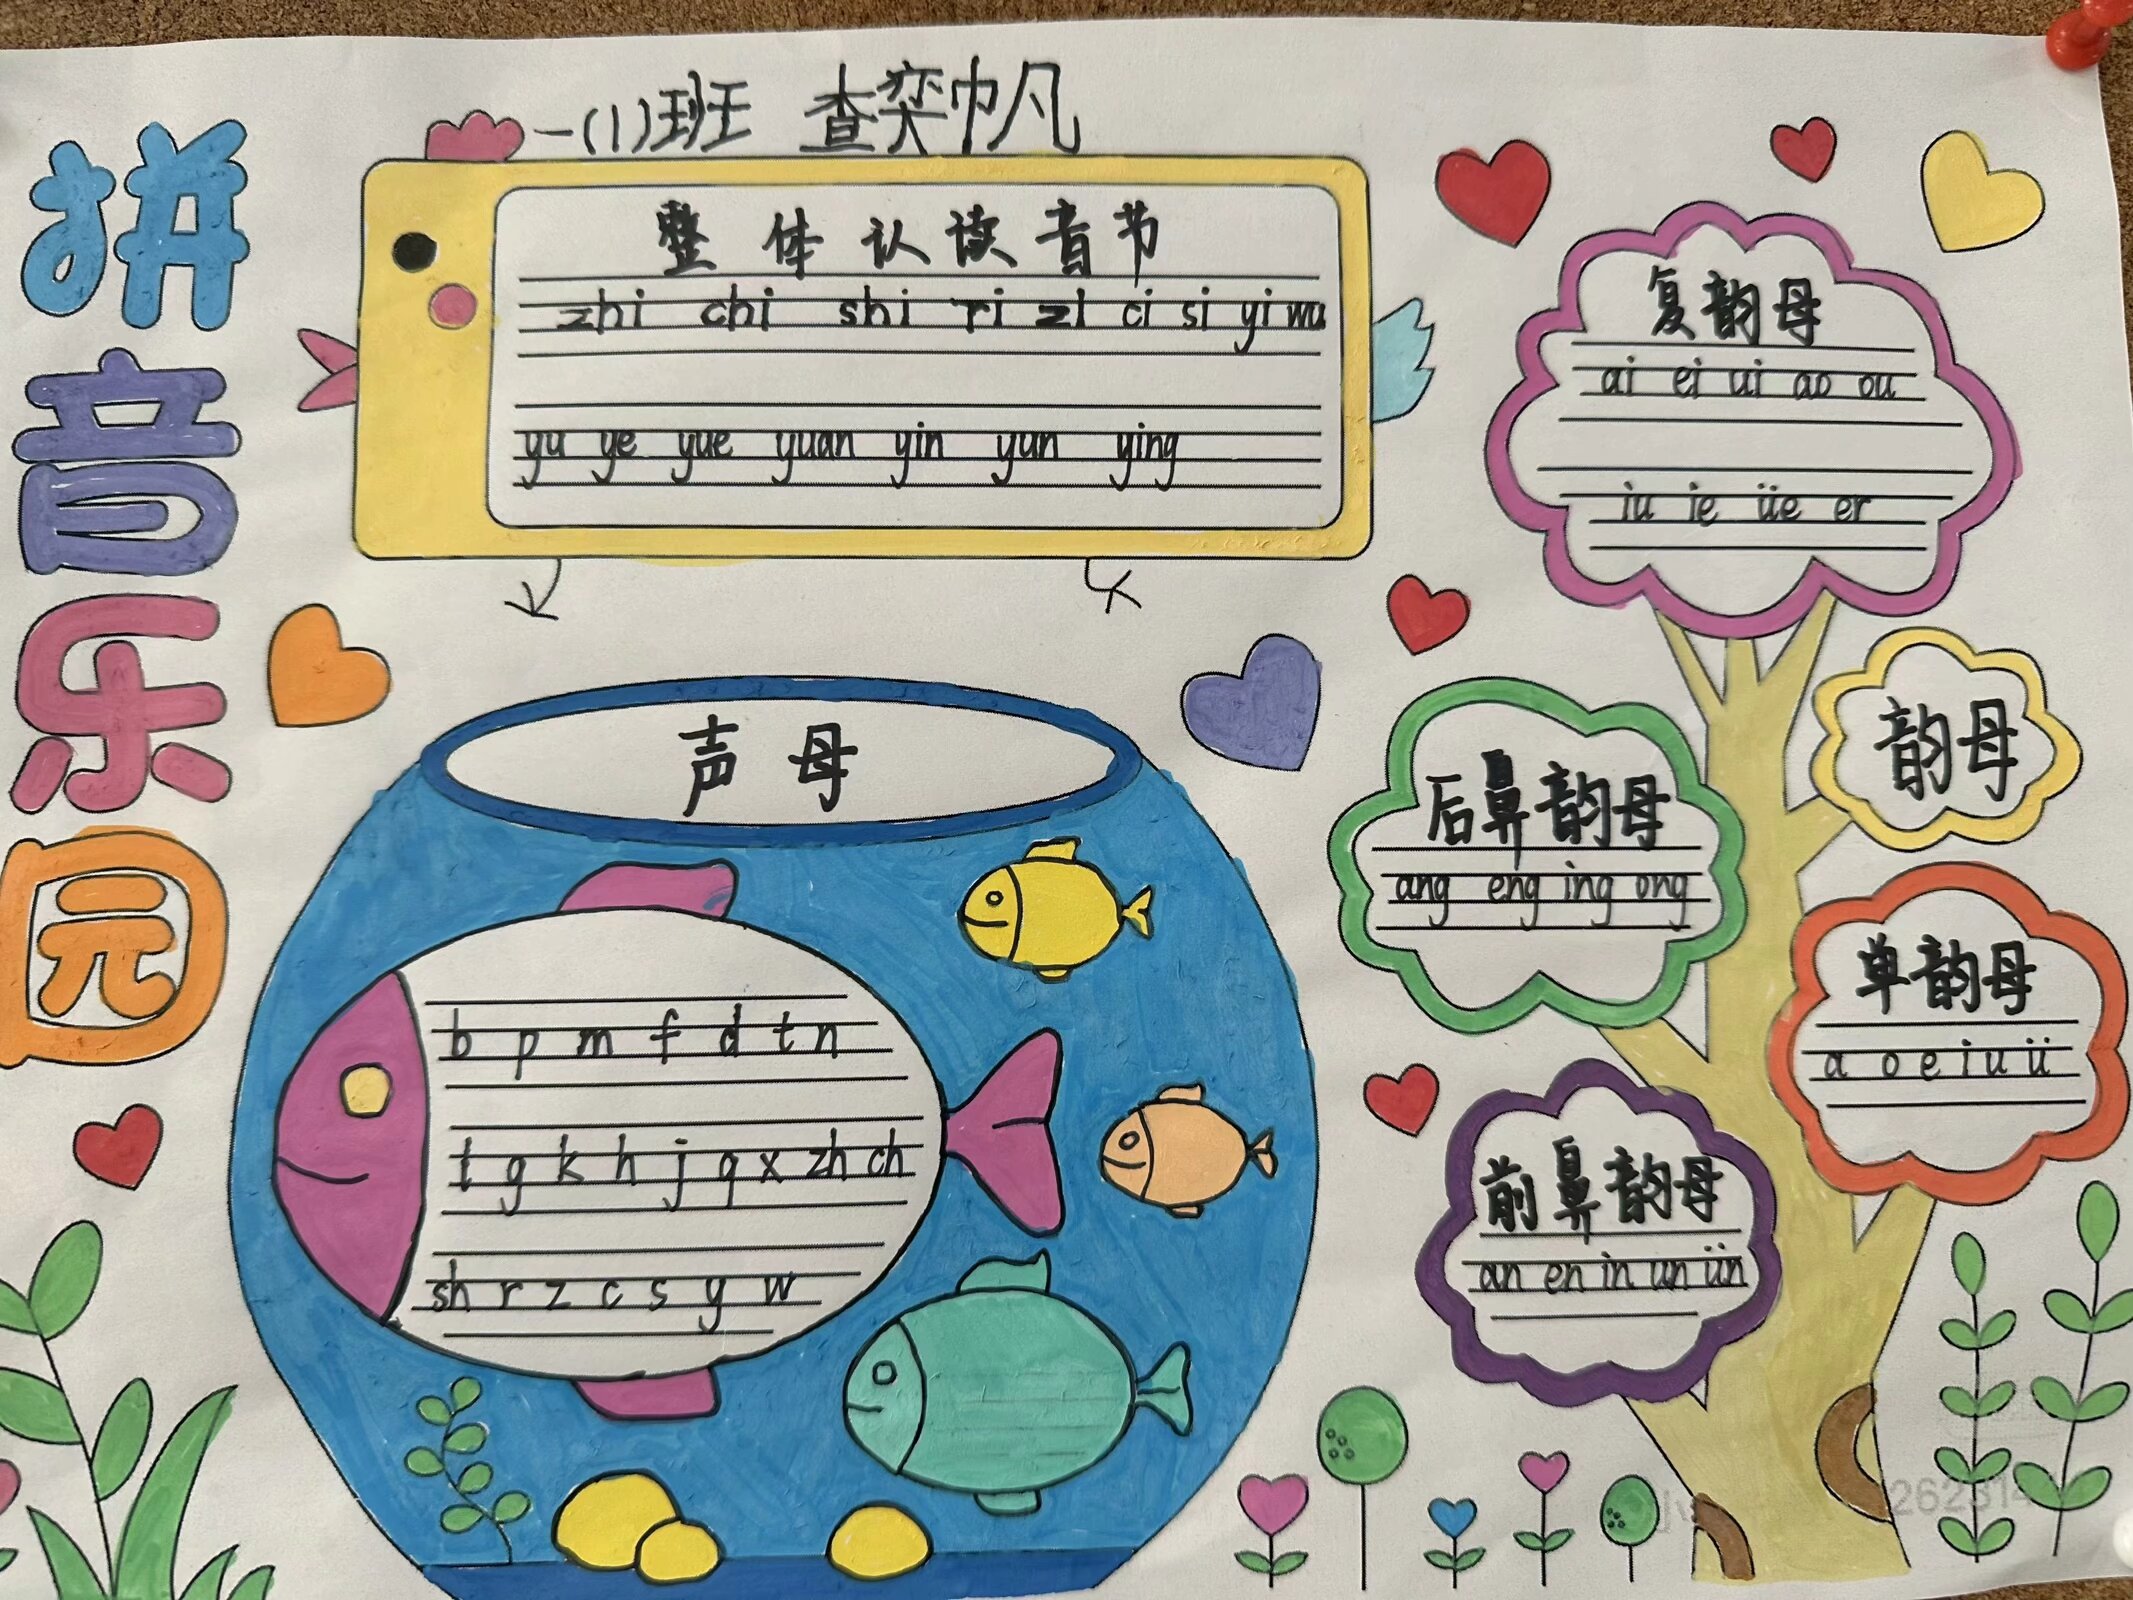 拼音乐园
一(1)班 查奕帆
整体认读音节
zhi chi shi ri zi ci si yi wu
yu ye yue yuan yin yun ying
声母
b p m f d t n
l g k h j q x zh ch
sh r z c s y w
复韵母
ai ei ui ao ou
iu ie üe er
韵母
后鼻韵母
ang eng ing ong
单韵母
a o e i u ü
前鼻韵母
an en in un ün